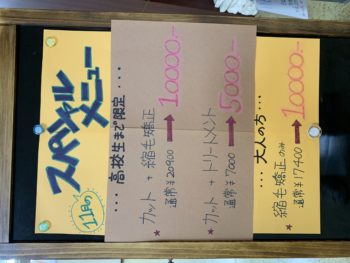 11月の
スペシャル
メニュー
... 高校生まで限定 ...
★ カット + 縮毛矯正
通常 ¥20900 → 10000.-
★ カット + トリートメント
通常 ¥7000 → 5000.-
... 大人の方 ...
★ 縮毛矯正のみ
通常 ¥17400 → 10000.-